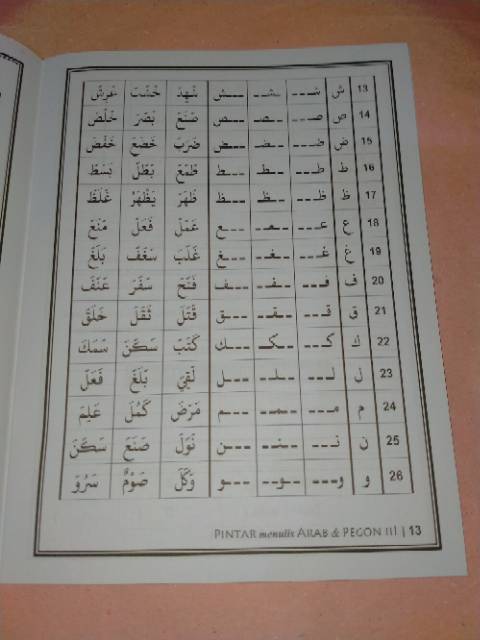 13 ش شـ ـشـ ـش شَهِدَ خَشَت عَرِشَ
14 ص صـ ـصـ ـص صَنَعَ بَصَرَ خَلَصَ
15 ض ضـ ـضـ ـض ضَرَبَ خَضَعَ خَفَضَ
16 ط طـ ـطـ ـط طَمَعَ بَطَلَ بَسَطَ
17 ظ ظـ ـظـ ـظ ظَهَرَ يَظْهَرُ غَلَظَ
18 ع عـ ـعـ ـع عَمَلَ فَعَلَ مَنَعَ
19 غ غـ ـغـ ـغ غَلَبَ سَغَفَ بَلَغَ
20 ف فـ ـفـ ـف فَتَحَ سَفَرَ عَنَفَ
21 ق قـ ـقـ ـق قَتَلَ ثَقَلَ خَلَقَ
22 ك كـ ـكـ ـك كَتَبَ سَكَنَ سَمَكَ
23 ل لـ ـلـ ـل لَقِيَ بَلَغَ فَعَلَ
24 م مـ ـمـ ـم مَرَضَ كَمُلَ عَلِمَ
25 ن نـ ـنـ ـن نَوَلَ صَنَعَ سَكَنَ
26 و و ـو ـو وَكَّلَ صَوْمٌ سَرُوَ
PINTAR menulis ARAB & PEGON III | 13